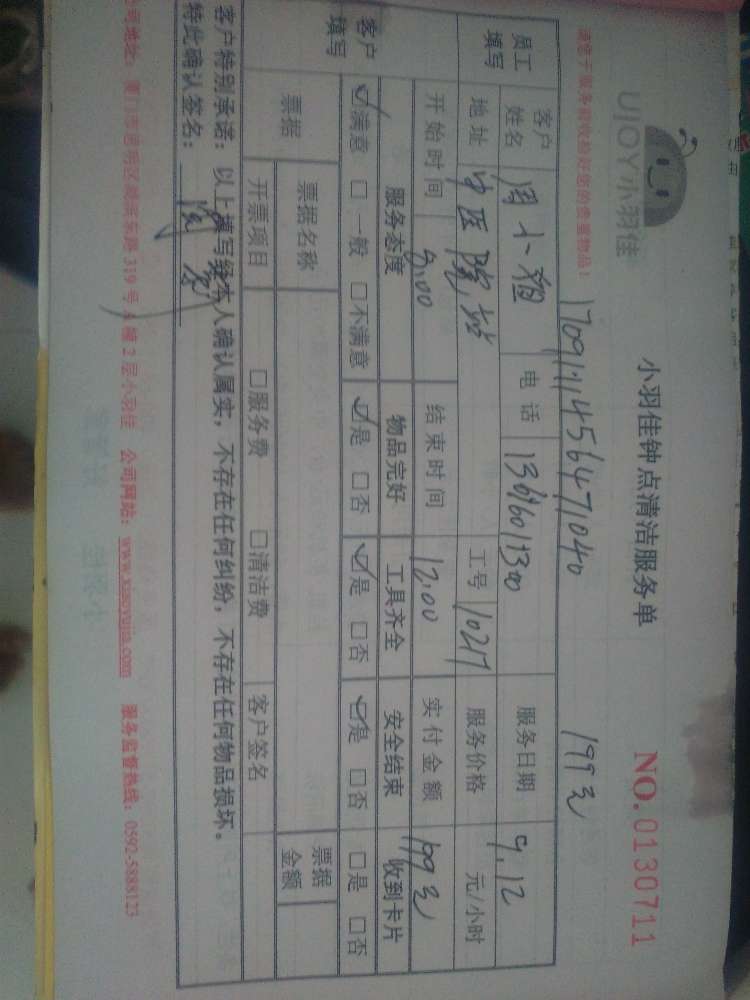 UJOY小羽佳
小羽佳钟点清洁服务单
NO.0130711
请客于服务前收捡好您的贵重物品！
199元
员工填写 客户姓名 周小姐 电话 服务日期 9.12
地址 中医院站 工号 10217 服务价格 元/小时
开始时间 9:00 结束时间 12:00 实付金额 199元
客户填写 服务态度 物品完好 工具齐全 安全结束 收到卡片
☑满意 □一般 □不满意 ☑是 □否 ☑是 □否 ☑是 □否 □是 □否
票据 票据名称 票据金额
开票项目 □服务费 □清洁费 客户签名
客户特别承诺：以上填写经本人确认属实，不存在任何纠纷，不存在任何物品损坏。
特此确认签名：
公司地址：厦门市思明区湖滨东路319号A幢2层小羽佳 公司网站：www.xiaoyujia.com 服务监督热线：0592-5888123